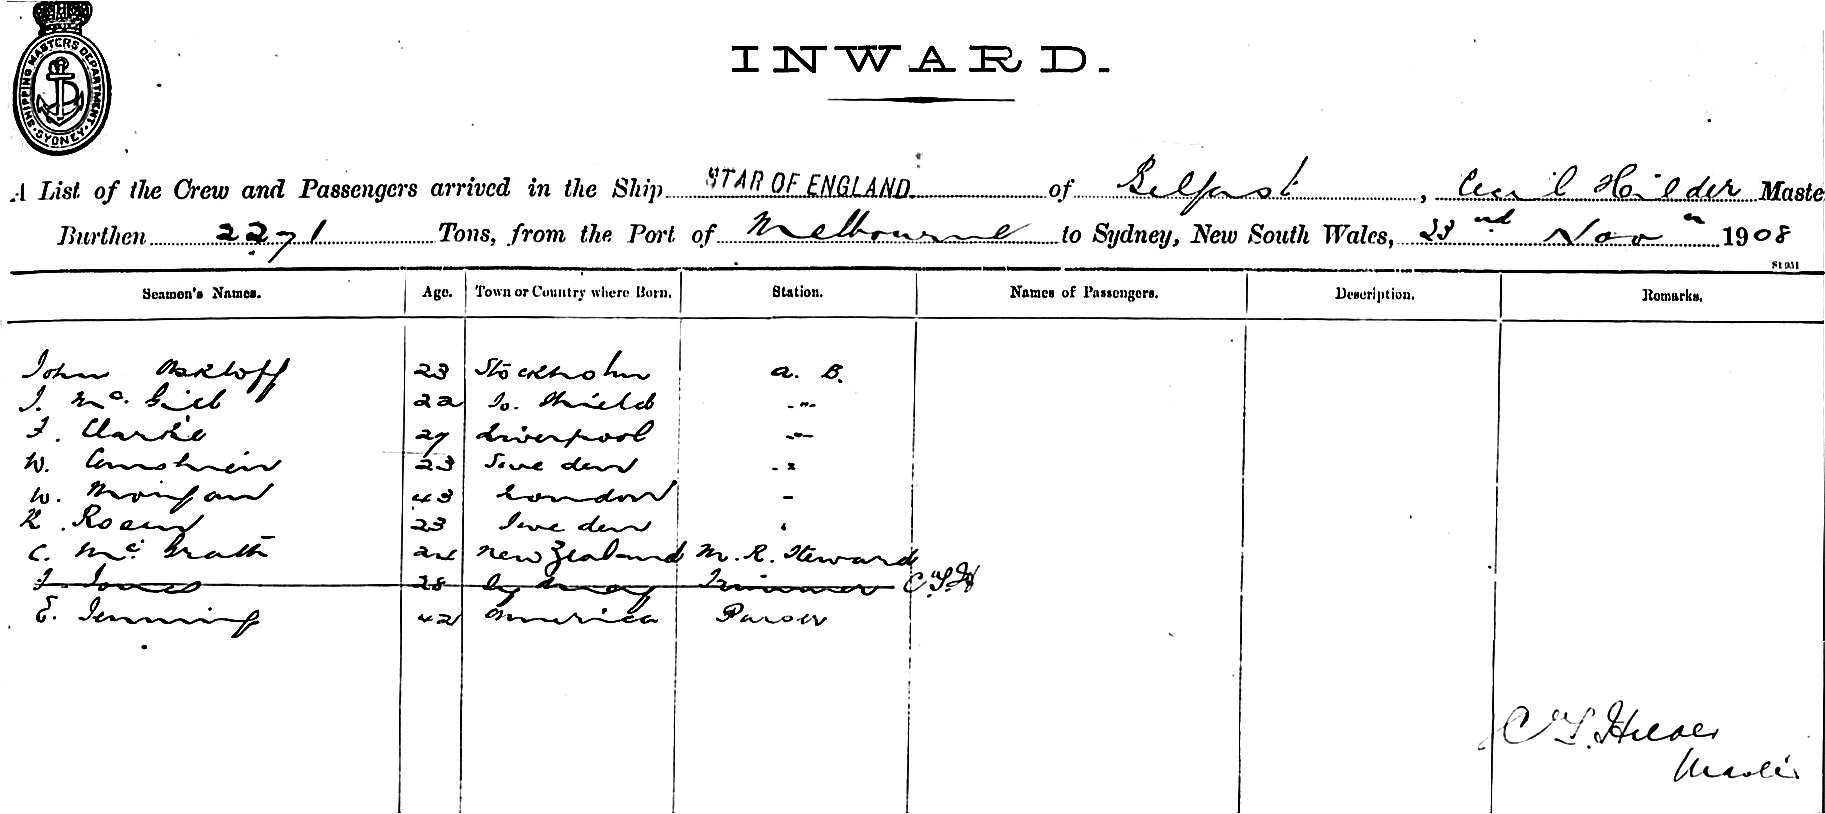 SHIPPING MASTERS DEPARTMENT · SYDNEY ·
INWARD.
A List of the Crew and Passengers arrived in the Ship STAR OF ENGLAND. of Belfast, Cecil Hilder Maste
Burthen 2271 Tons, from the Port of Melbourne to Sydney, New South Wales, 23nd Nov 1908
St 951
Seamen's Names. Age. Town or Country where Born. Station. Names of Passengers. Description. Remarks.
John 23 Stockholm A. B. 
J. Mc. Gill 22 So. Shields -"-
F. Clarke 27 Liverpool -"-
W. 23 Sweden - "
W. Morgan 43 London -
K. Rosen 23 Sweden
C. Mc Grath 24 New Zealand M. R. Steward
J. Jones 28 Trimmer C.S.H
E. Jenning 42 America Purser
C S. Hilder
Master